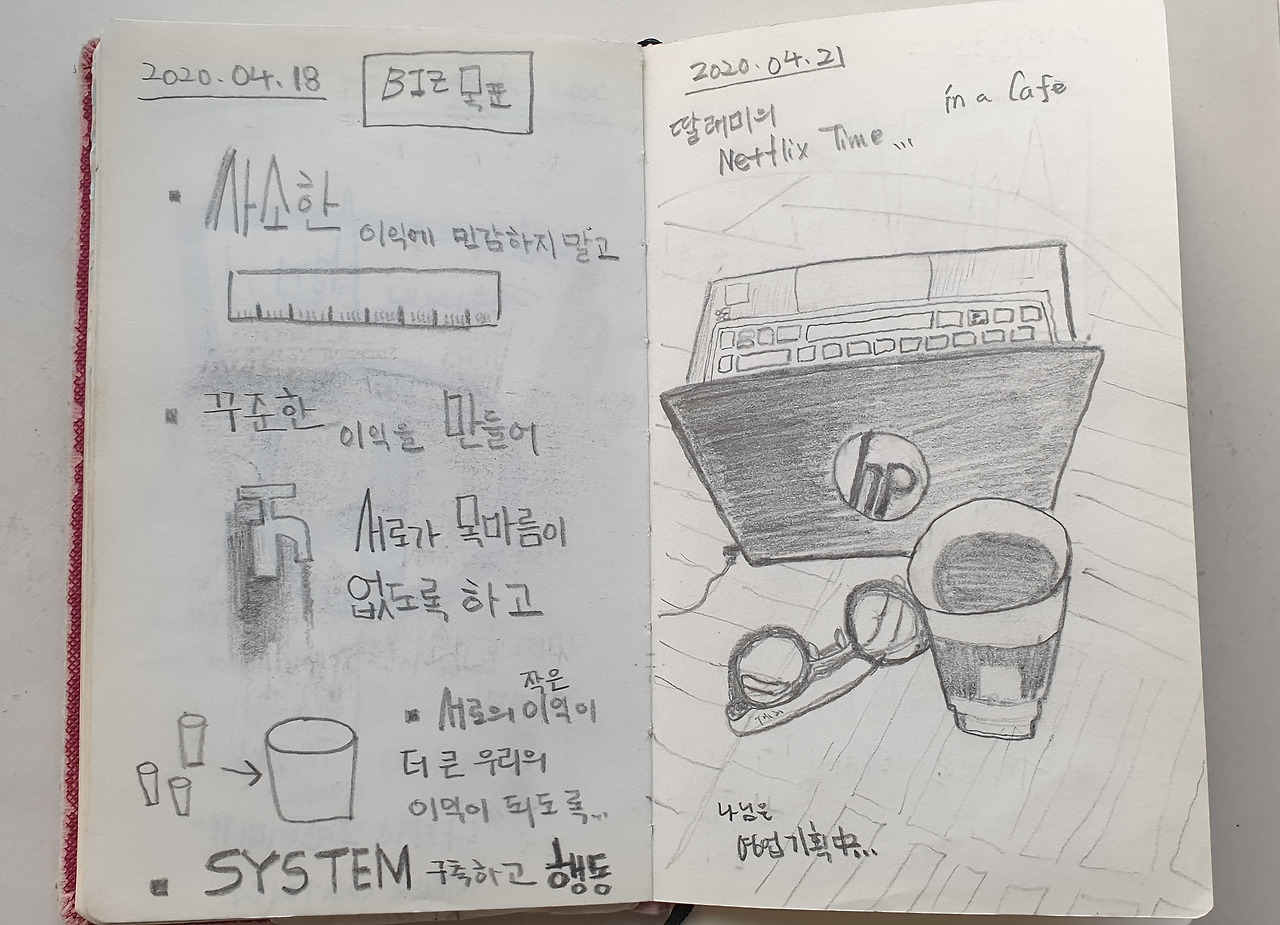 2020.04.18
BIZ 목표
▪ 사소한 이익에 민감하지 말고
▪ 꾸준한 이익을 만들어
서로가 목마름이
없도록 하고
작은
▪ 서로의 이익이
더 큰 우리의
이익이 되도록...
▪ SYSTEM 구축하고 행동
2020.04.21
in a Cafe
딸래미의
Netflix Time...
hp
나님은
기획中...